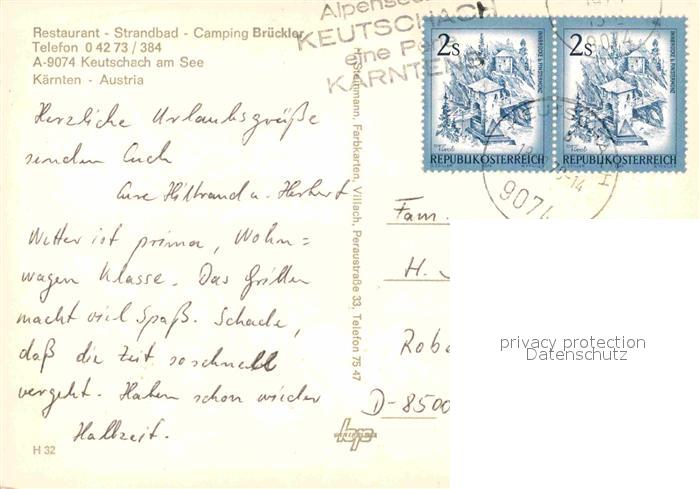 Restaurant - Strandbad - Camping Brückler
Telefon 0 42 73 / 384
A-9074 Keutschach am See
Kärnten - Austria
Herzliche Urlaubsgrüße
senden Euch
Eure Hiltrand u. Herbert
Wetter ist prima, Wohn=
wagen Klasse. Das Grillen
macht viel Spaß. Schade,
daß die Zeit so schnell
vergeht. Haben schon wieder
Halbzeit.
H 32
H. Steinmann, Farbkarten, Villach, Peraustraße 33, Telefon 75 47
Alpensee
KEUTSCHACH
eine Perle
KÄRNTENS
2s
REPUBLIK ÖSTERREICH
2s
REPUBLIK ÖSTERREICH
9074
9074
Fam.
H.
Robe
D-8500
privacy protection
Datenschutz